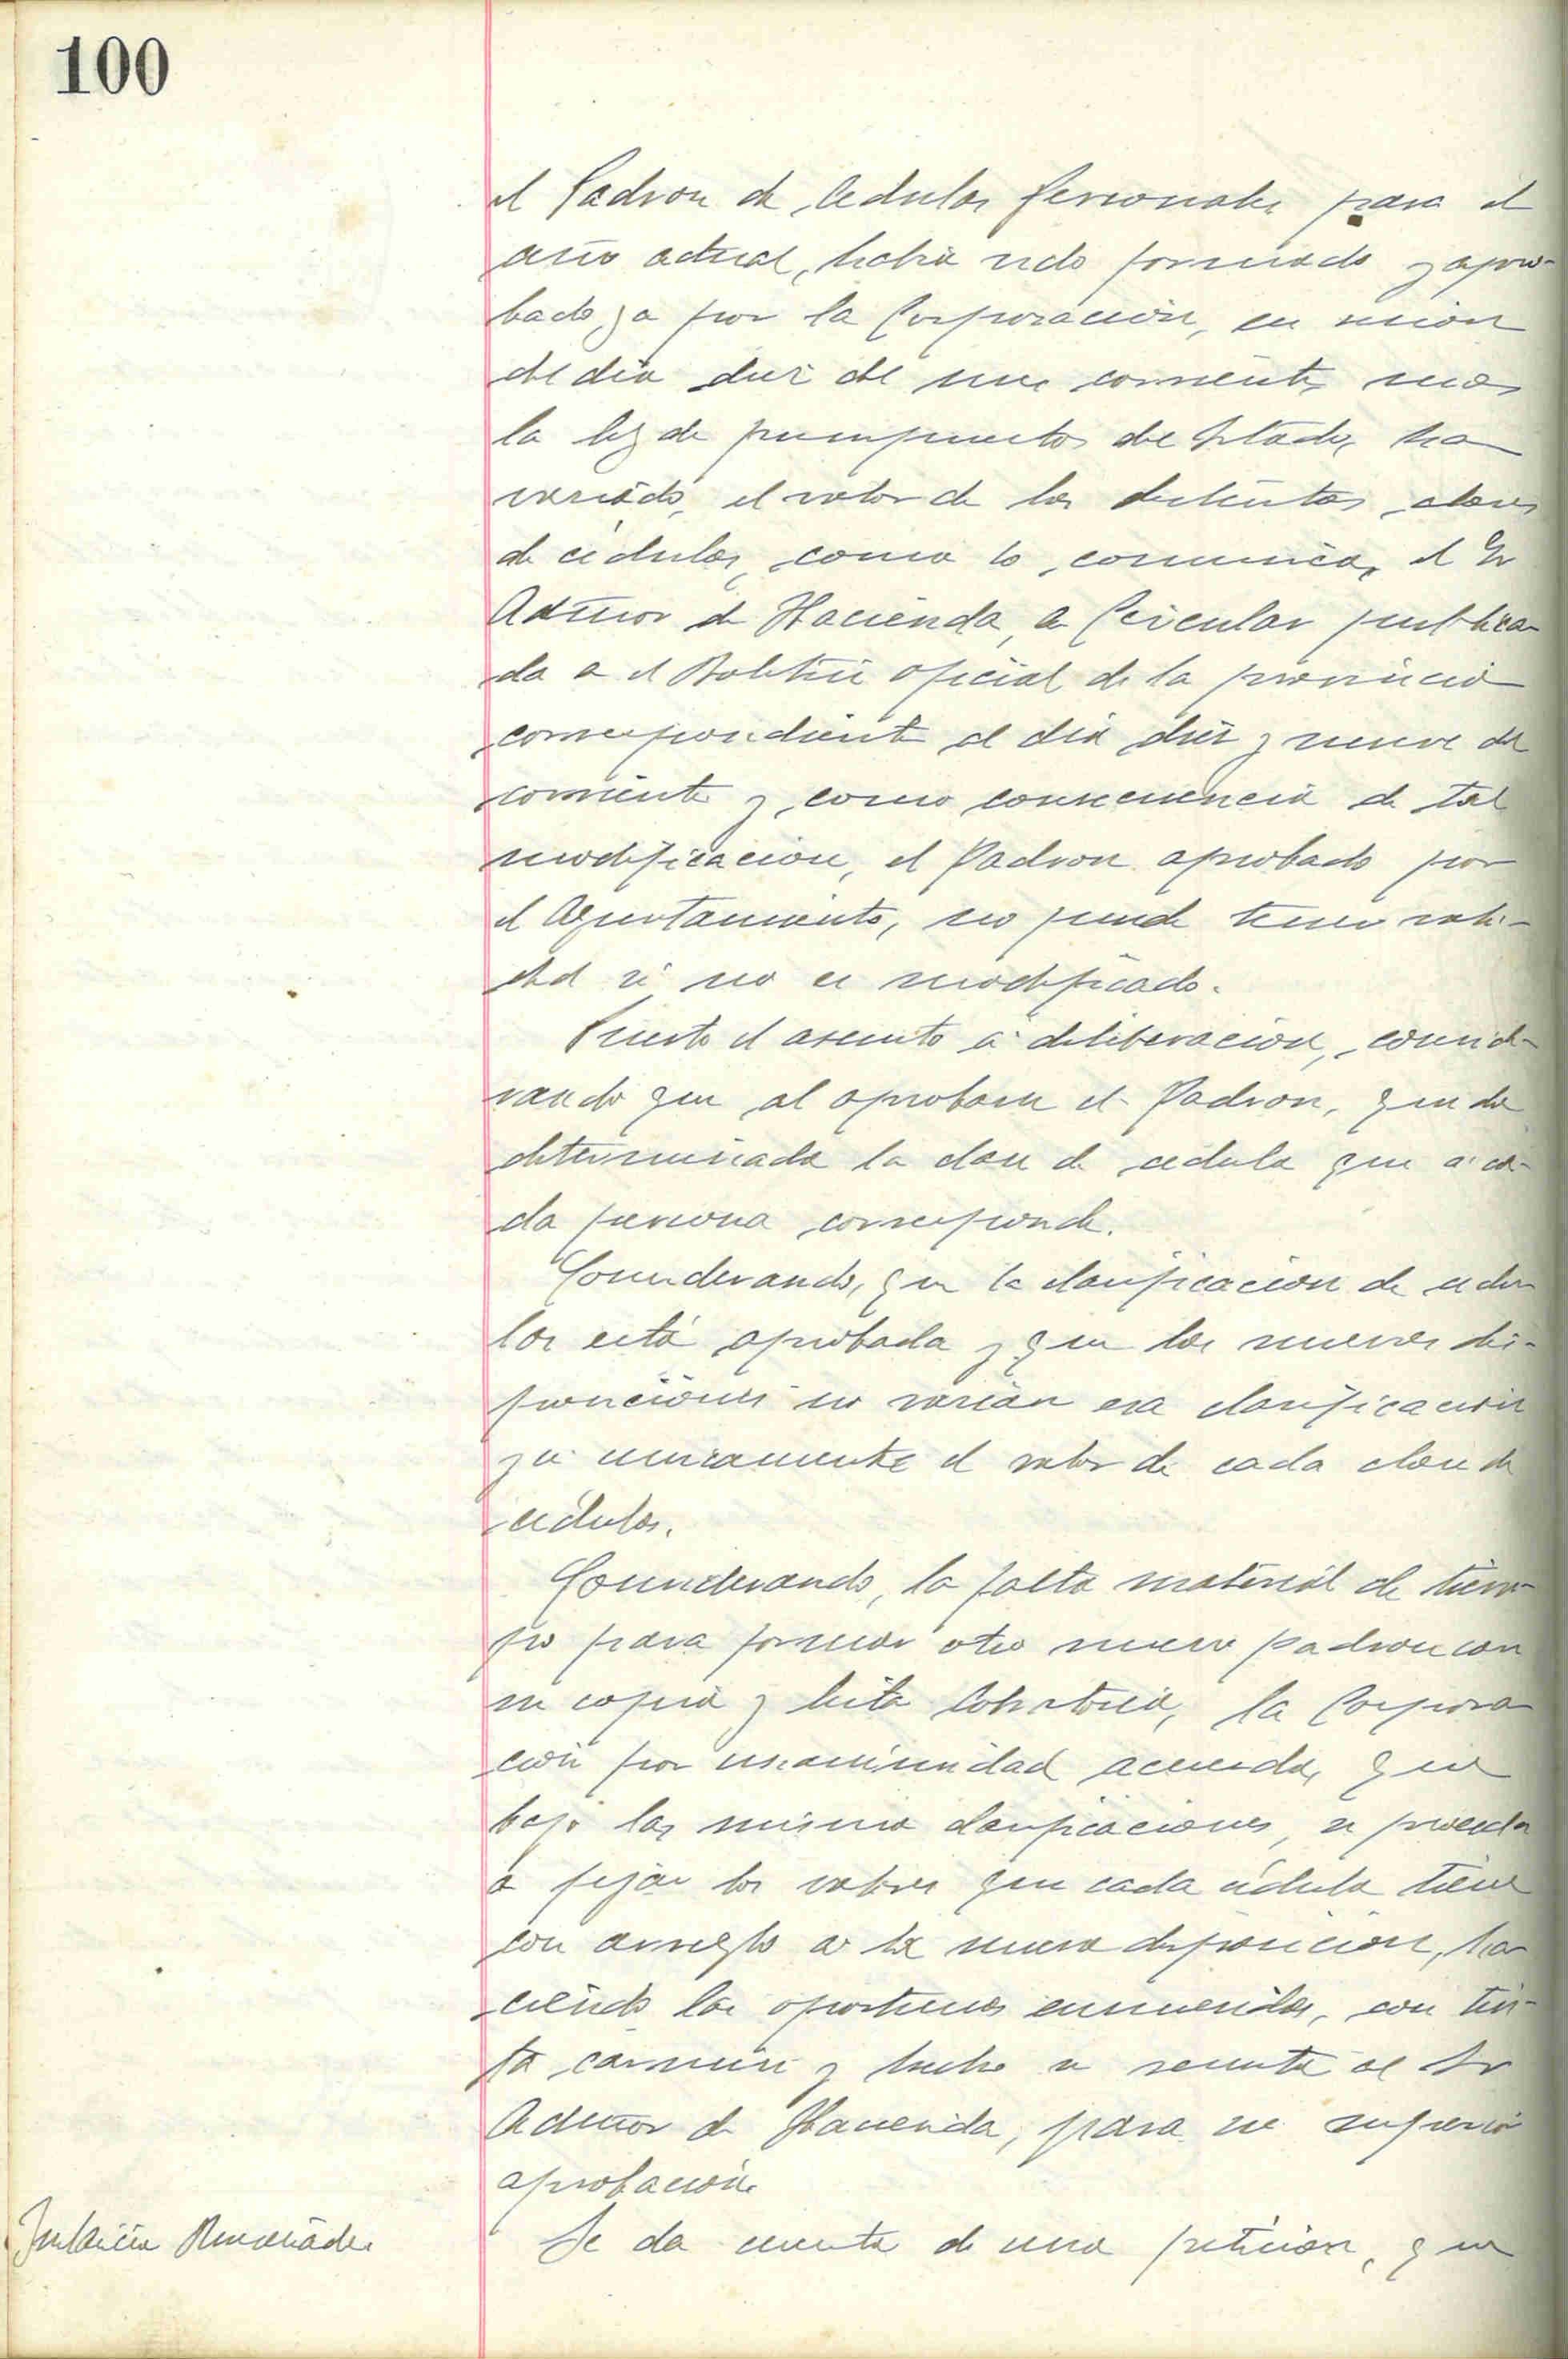 100
el Padron de Cedulas personales para el
año actual, habia sido formado y apro-
bado ya por la Corporación, en sesión
del dia diez del mes corriente, mas
la ley de presupuestos del Estado, ha
variado, el valor de las distintas clases
de cédulas, como lo comunica, el Sr
Admor de Hacienda, en Circular publica-
da en el Boletin oficial de la provincia
correspondiente al dia diez y nueve del
corriente y como consecuencia de tal
modificación, el Padron aprobado por
el Ayuntamiento, no puede tener vali-
dad si no es modificado.
Puesto el asunto á deliberación, conside-
rando que al aprobarse el Padron, queda
determinada la clase de cedula que á ca-
da persona corresponde.
Considerando, que la clasificacion de cedu-
las está aprobada y que las nuevas dis-
posiciones no varian esa clasificación
y si unicamente el valor de cada clase de
cédulas.
Considerando, la falta material de tiem-
po para formar otro nuevo padron con
su copia y lista Cobratoria, la Corpora-
ción por unanimidad acuerda, que
bajo las misma clasificaciones, se proceda
a fijar los valores que cada cédula tiene
con arreglo a la nueva disposicion, ha-
ciendo las oportunas enmiendas, con tin-
ta carmin y hecho se remita al Sr
Admor de Hacienda, para su superior
aprobación.
Se da cuenta de una petición, que